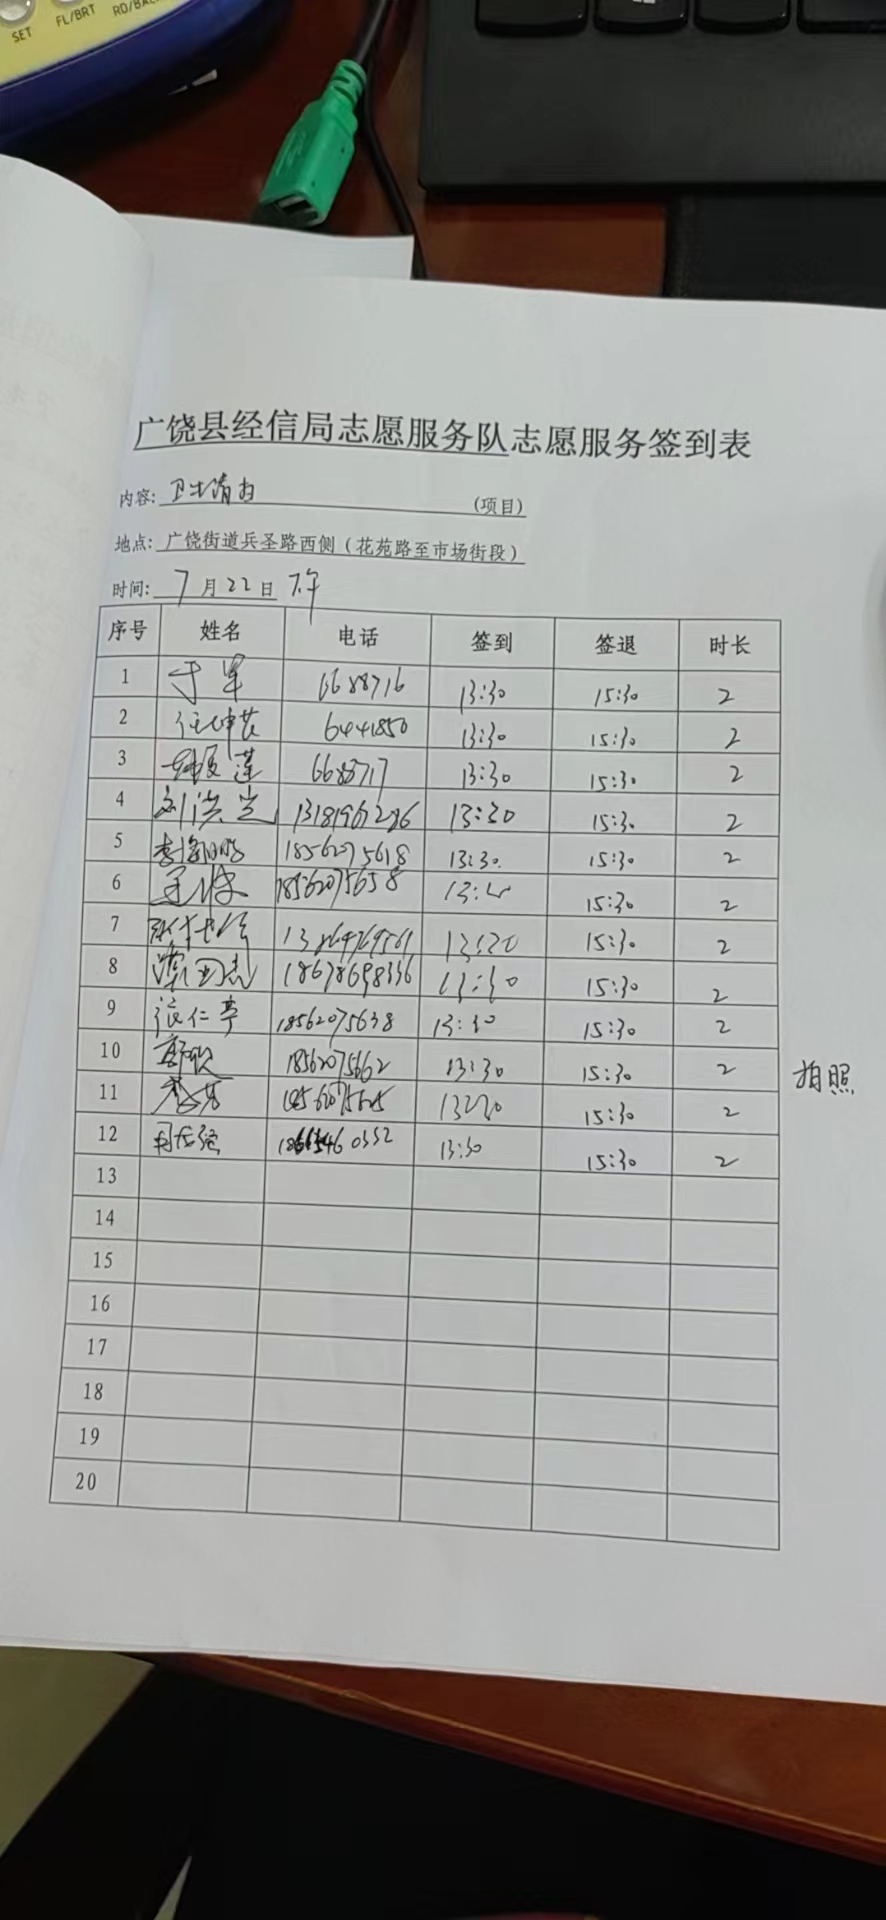 SET FL/BRT RD/BAC
广饶县经信局志愿服务队志愿服务签到表
内容: 卫生清扫 (项目)
地点: 广饶街道兵圣路西侧（花苑路至市场街段）
时间: 7月22日 下午
序号 姓名 电话 签到 签退 时长
1 于军 6688716 13:30 15:30 2
2 6441850 13:30 15:30 2
3 6688717 13:30 15:30 2
4 刘洪光 13181967286 13:30 15:30 2
5 18562075618 13:30 15:30 2
6 18562075658 15:30 2
7 15:30 2
8 18678698336 13:30 15:30 2
9 张仁亭 18562075638 13:30 15:30 2
10 18562075662 13:30 15:30 2 拍照
11 15:30 2
12 13:30 15:30 2
13
14
15
16
17
18
19
20